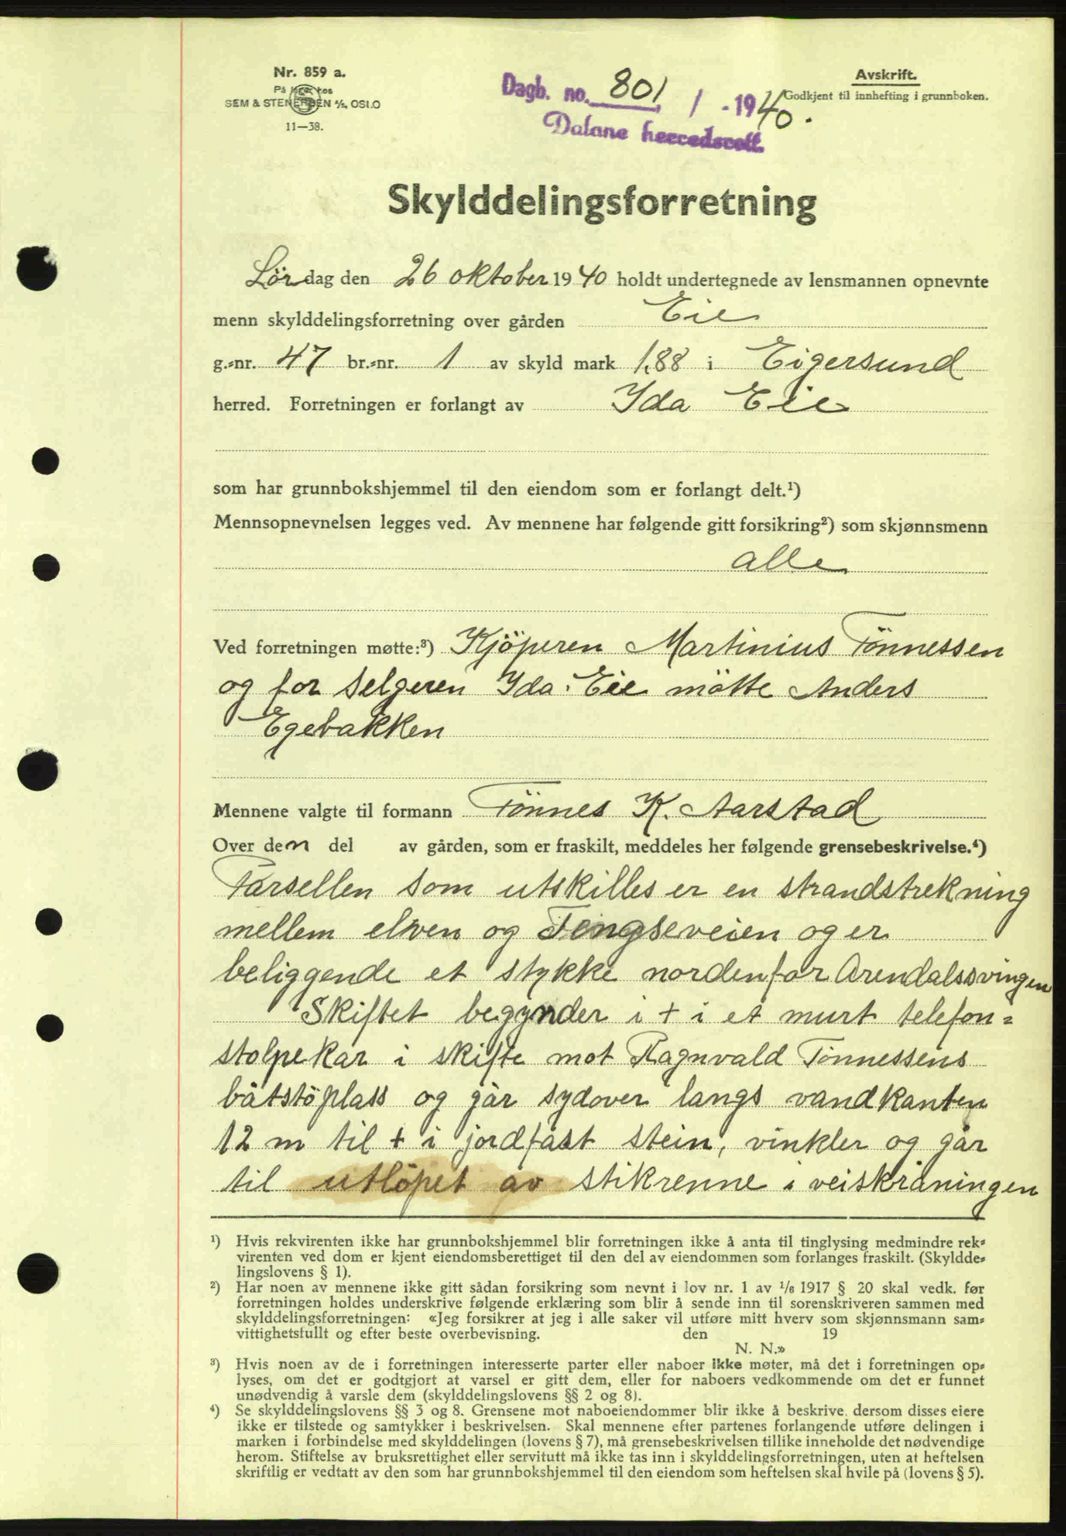 Nr. 859 a.
SEM & STENERSEN A/S, OSLO
11—38.
Dagb. no. 801 / - 1940.
Dalane herredsrett.
Avskrift.
Godkjent til innhefting i grunnboken.
Skylddelingsforretning
Lördag den 26 oktober 1940 holdt undertegnede av lensmannen opnevnte
menn skylddelingsforretning over gården Eie
g.-nr. 47 br.-nr. 1 av skyld mark 1,88 i Eigersund
herred. Forretningen er forlangt av Ida Eie
som har grunnbokshjemmel til den eiendom som er forlangt delt.¹)
Mennsopnevnelsen legges ved. Av mennene har følgende gitt forsikring²) som skjønnsmenn
alle
Ved forretningen møtte:³) Kjöperen Martinius Tönnessen
og for selgeren Ida Eie mötte Anders
Egebakken
Mennene valgte til formann Tönnes K. Aarstad
Over den del av gården, som er fraskilt, meddeles her følgende grensebeskrivelse.⁴)
Parsellen som utskilles er en strandstrekning
mellem elven og Tengseveien og er
beliggende et stykke nordenfor Arendalssvingen
Skiftet begynder i + i et murt telefon=
stolpekar i skifte mot Ragnvald Tönnessens
båtstöplass og går sydover langs vandkanten
12 m til + i jordfast stein, vinkler og går
til utlöpet av stikrenne i veiskråningen
¹) Hvis rekvirenten ikke har grunnbokshjemmel blir forretningen ikke å anta til tinglysing medmindre rek-
virenten ved dom er kjent eiendomsberettiget til den del av eiendommen som forlanges fraskilt. (Skyldde-
lingslovens § 1).
²) Har noen av mennene ikke gitt sådan forsikring som nevnt i lov nr. 1 av ¹/₆ 1917 § 20 skal vedk. før
forretningen holdes underskrive følgende erklæring som blir å sende inn til sorenskriveren sammen med
skylddelingsforretningen: «Jeg forsikrer at jeg i alle saker vil utføre mitt hverv som skjønnsmann sam-
vittighetsfullt og efter beste overbevisning. den 19
N. N.»
³) Hvis noen av de i forretningen interesserte parter eller naboer ikke møter, må det i forretningen op-
lyses, om det er godtgjort at varsel er gitt dem, eller for naboers vedkommende om det er funnet
unødvendig å varsle dem (skylddelingslovens §§ 2 og 8).
⁴) Se skylddelingslovens §§ 3 og 8. Grensene mot naboeiendommer blir ikke å beskrive, dersom disses eiere
ikke er tilstede og samtykker i beskrivelsen. Skal mennene efter partenes forlangende utføre delingen i
marken i forbindelse med skylddelingen (lovens § 7), må grensebeskrivelsen tillike inneholde det nødvendige
herom. Stiftelse av bruksrettighet eller servitutt må ikke tas inn i skylddelingsforretningen, uten at heftelsen
skriftlig er vedtatt av den som har grunnbokshjemmel til den eiendom som heftelsen skal hvile på (lovens § 5).